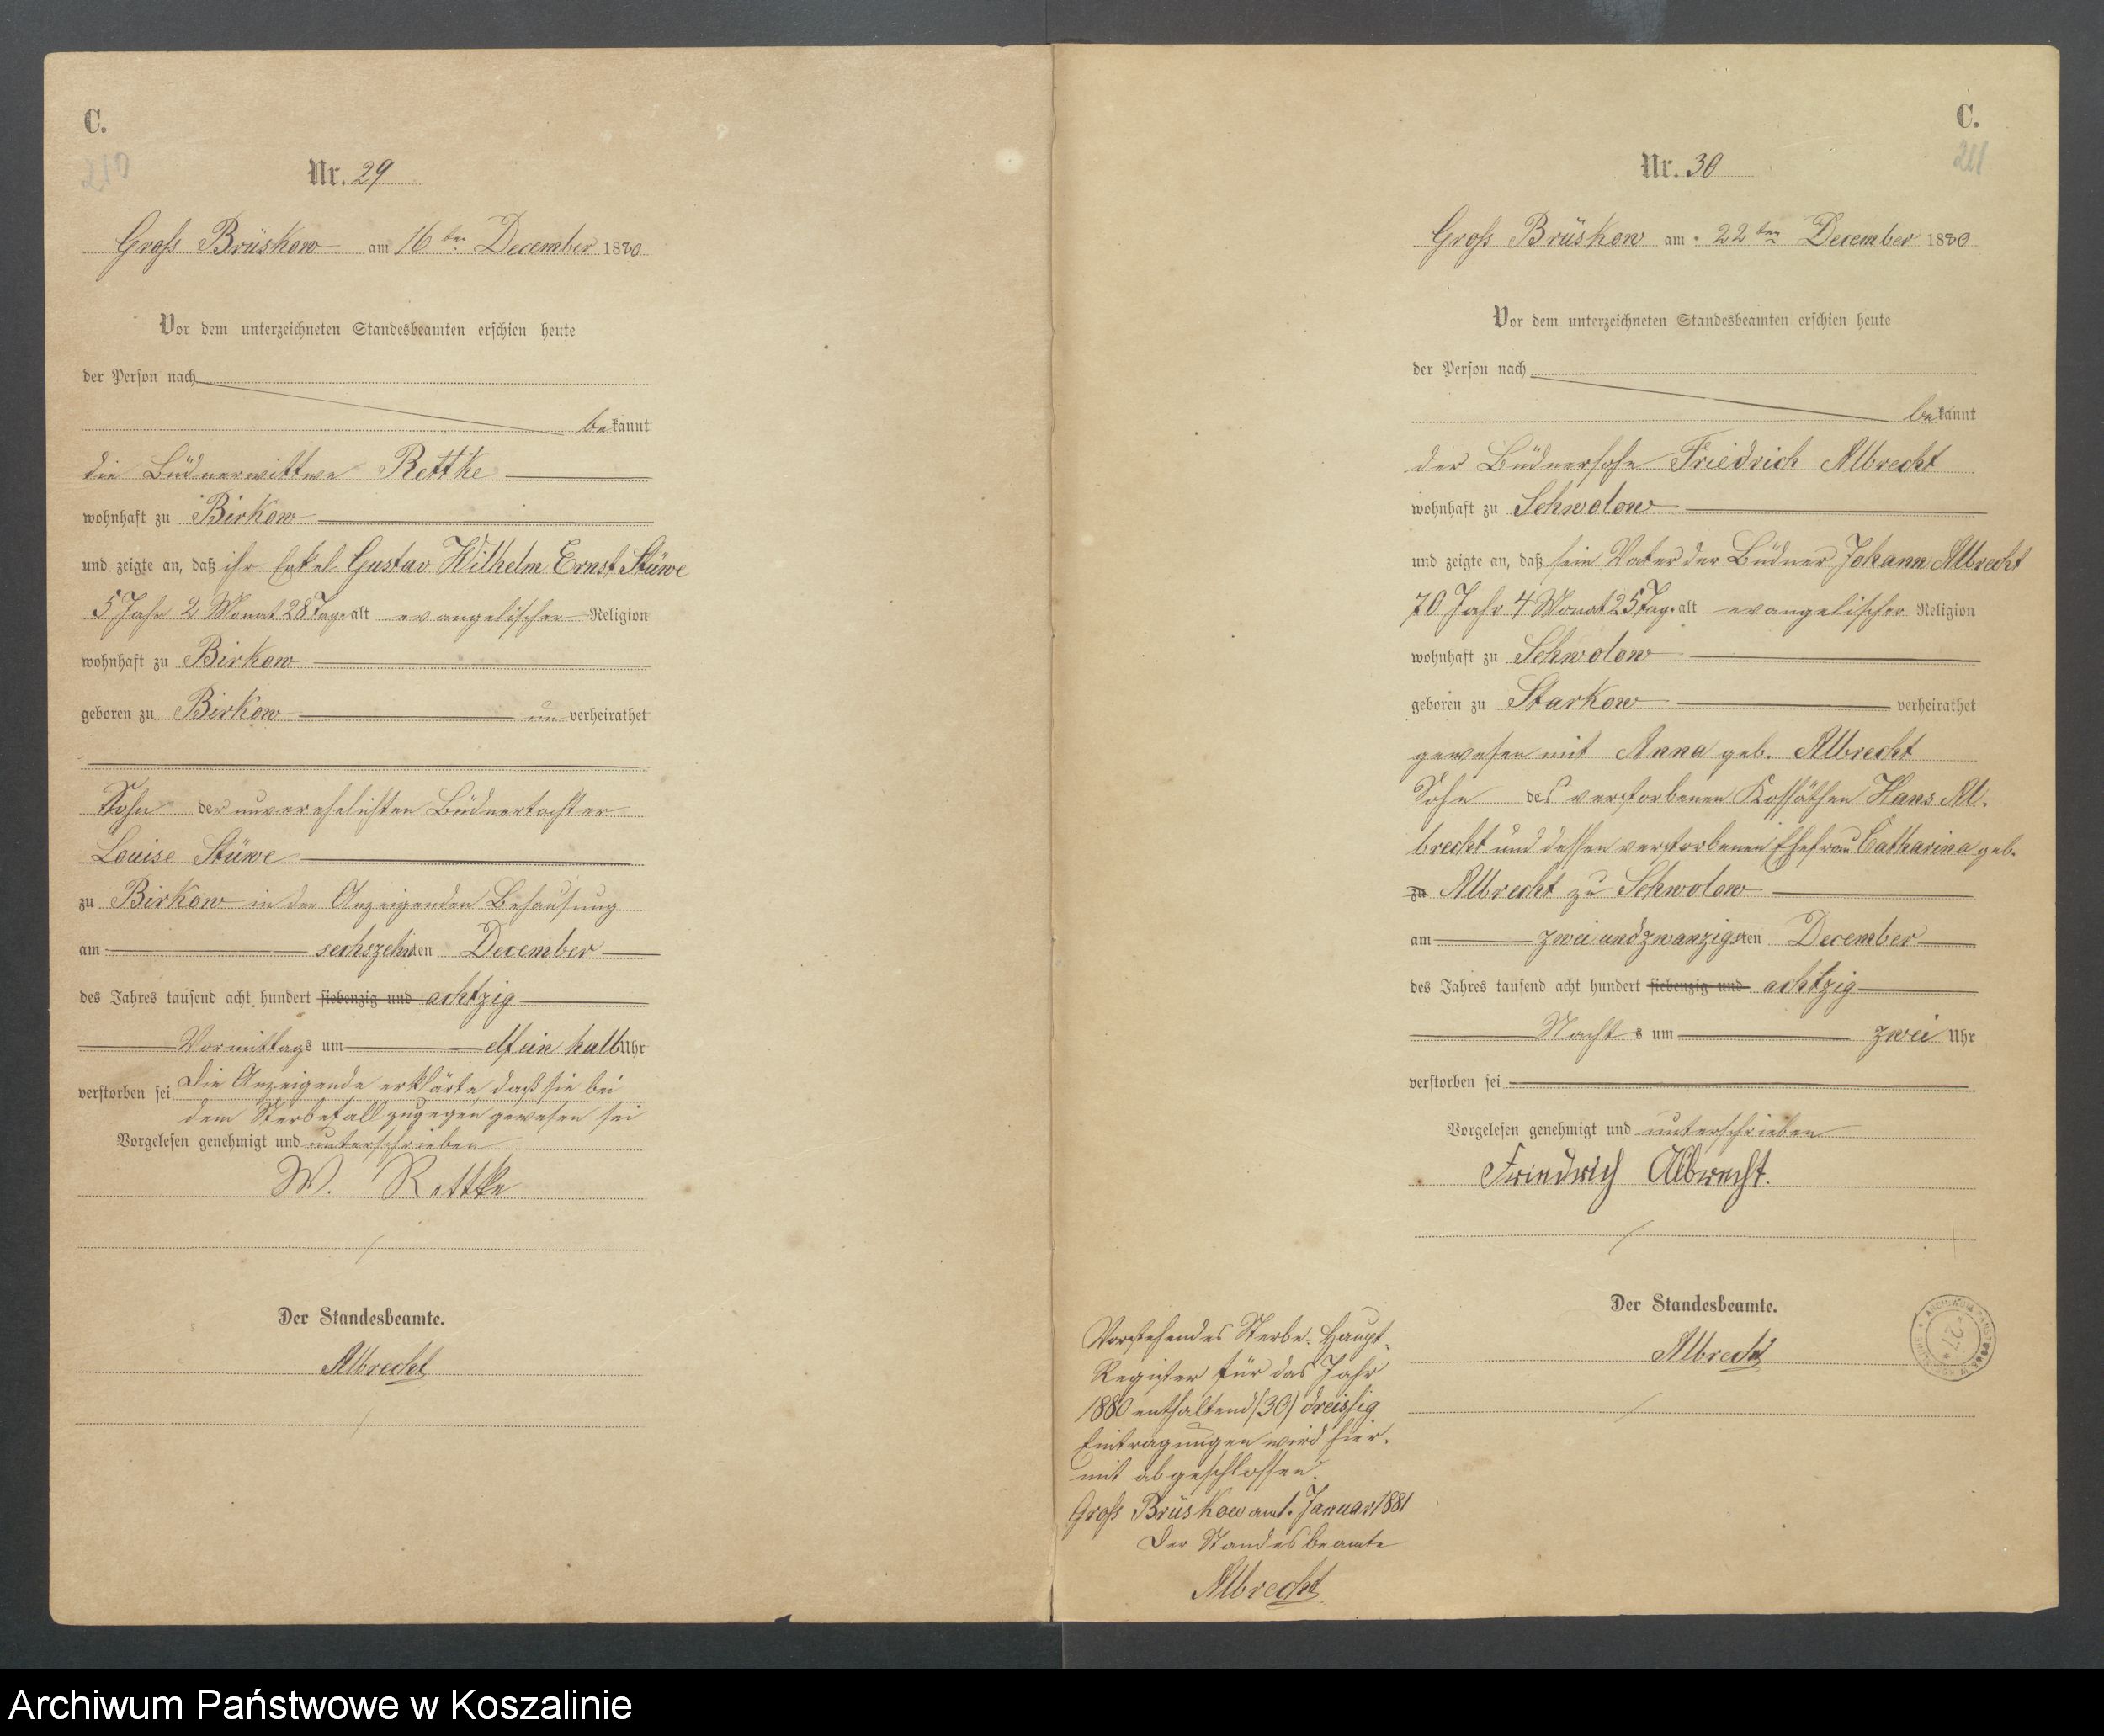 C.
210
Nr. 29
Gross Brüskow am 16ten December 1880
Vor dem unterzeichneten Standesbeamten erschien heute
der Person nach
bekannt
die Büdnerwittwe Rettke
wohnhaft zu Birkow
und zeigte an, daß ihr Enkel Gustav Wilhelm Ernst Stüwe
5 Jahr 2 Monat 28 Tage alt evangelischer Religion
wohnhaft zu Birkow
geboren zu Birkow unverheirathet
Sohn der unverehelichten Büdnertochter
Louise Stüwe
zu Birkow in der Anzeigenden Behausung
am sechszehnten December
des Jahres tausend acht hundert siebenzig und achtzig
Vormittags um elf ein halb Uhr
verstorben sei Die Anzeigende erklärte daß sie bei
dem Sterbefall zugegen gewesen sei
Vorgelesen genehmigt und unterschrieben
W. Rettke
Der Standesbeamte.
Albrecht
C.
211
Nr. 30
Gross Brüskow am 22ten December 1880
Vor dem unterzeichneten Standesbeamten erschien heute
der Person nach
bekannt
der Büdnersohn Friedrich Albrecht
wohnhaft zu Schwolow
und zeigte an, daß sein Vater der Büdner Johann Albrecht
70 Jahr 4 Monat 25 Tage alt evangelischer Religion
wohnhaft zu Schwolow
geboren zu Starkow verheirathet
gewesen mit Anna geb. Albrecht
Sohn des verstorbenen Kossäthen Hans Al-
brecht und dessen verstorbenen Ehefrau Catharina geb.
zu Albrecht zu Schwolow
am zwei und zwanzigsten December
des Jahres tausend acht hundert siebenzig und achtzig
Nachts um zwei Uhr
verstorben sei
Vorgelesen genehmigt und unterschrieben
Friedrich Albrecht.
Der Standesbeamte.
Albrecht
Vorstehendes Sterbe-Haupt-
Register für das Jahr
1880 enthaltend (30) dreissig
Eintragungen wird hier-
mit abgeschlossen.
Gross Brüskow am 1. Januar 1881
Der Standesbeamte
Albrecht
Archiwum Państwowe w Koszalinie